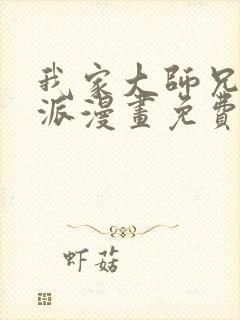 我家大師兄
派漫畫免費
虾菇